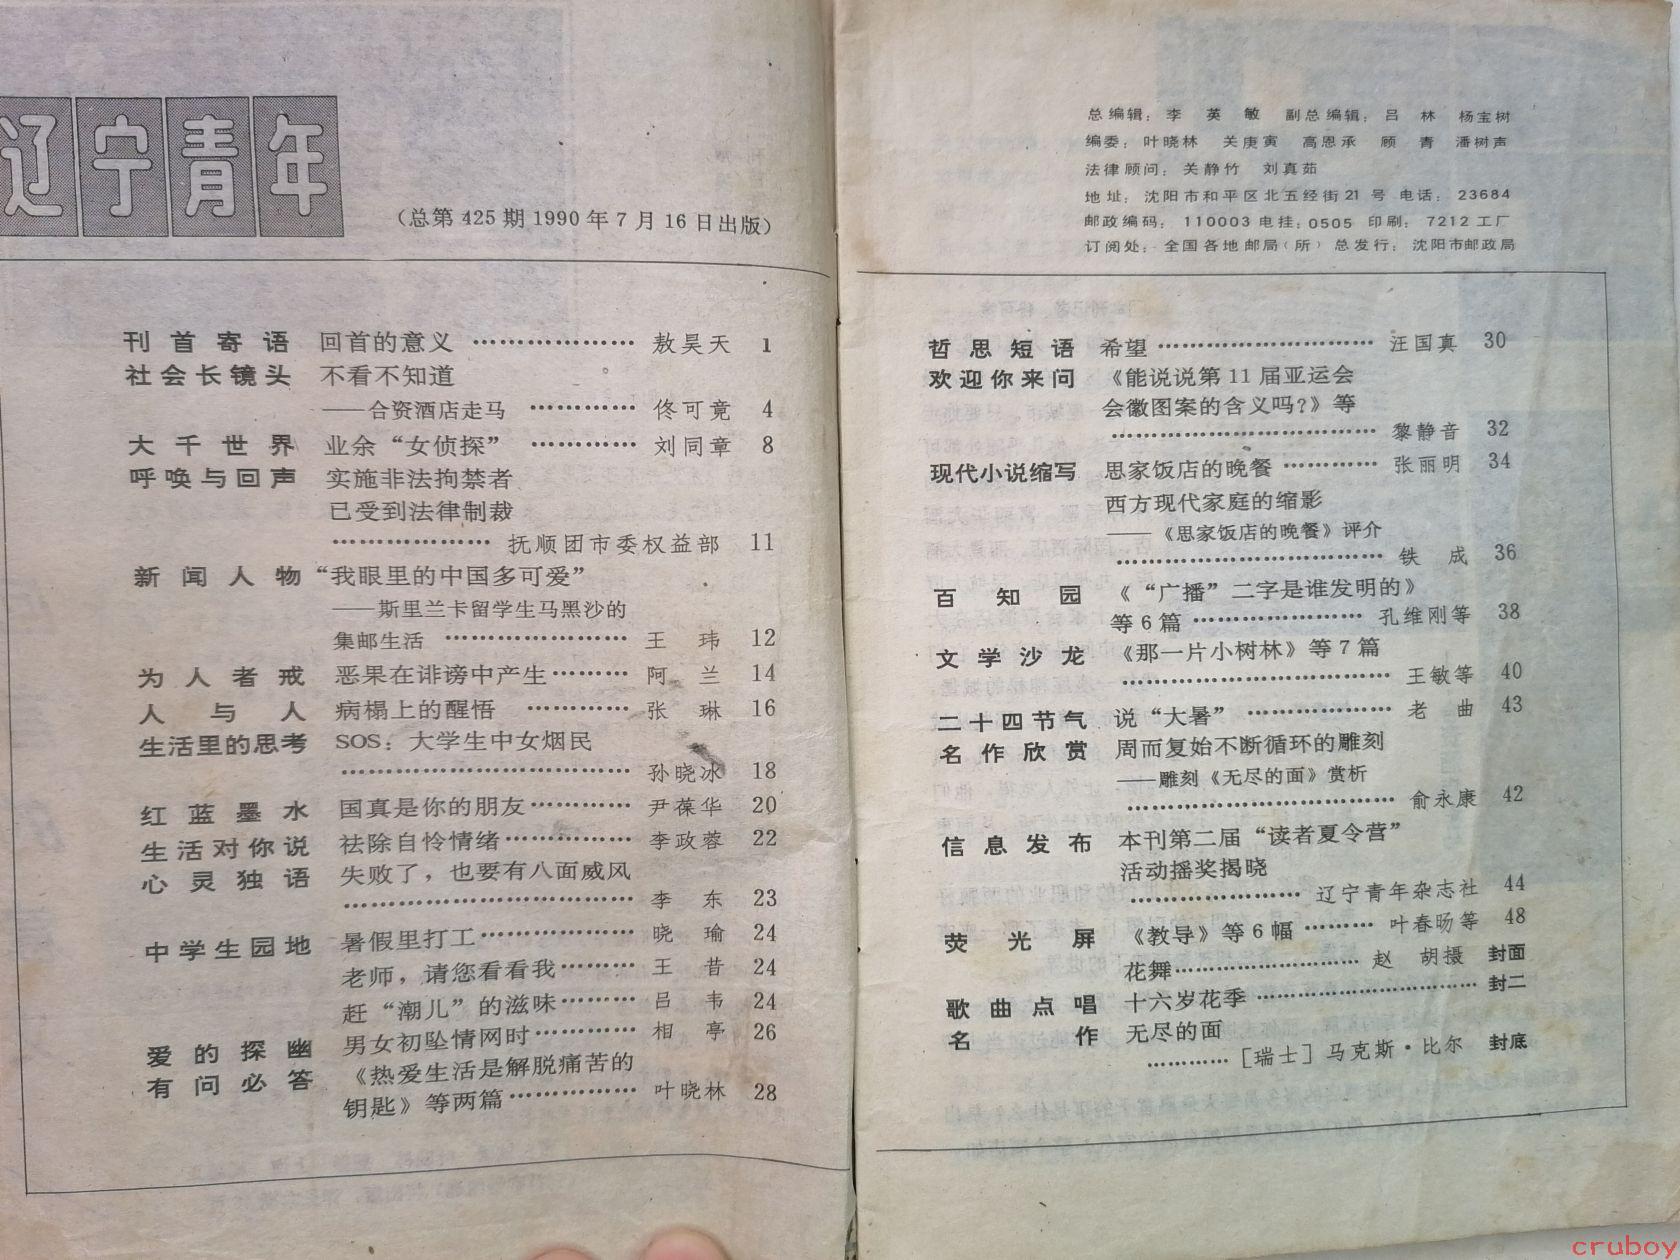 辽宁青年
（总第425期1990年7月16日出版）
刊首寄语 回首的意义 ………………… 敖昊天 1
社会长镜头 不看不知道
——合资酒店走马 ………… 佟可竟 4
大千世界 业余“女侦探” ………… 刘同章 8
呼唤与回声 实施非法拘禁者
已受到法律制裁
……………… 抚顺团市委权益部 11
新闻人物 “我眼里的中国多可爱”
——斯里兰卡留学生马黑沙的
集邮生活 ………………… 王玮 12
为人者戒 恶果在诽谤中产生……… 阿兰 14
人与人 病榻上的醒悟 ………… 张琳 16
生活里的思考 SOS：大学生中女烟民
…………………………… 孙晓冰 18
红蓝墨水 国真是你的朋友………… 尹葆华 20
生活对你说 祛除自怜情绪…………… 李政蓉 22
心灵独语 失败了，也要有八面威风
…………………………… 李东 23
中学生园地 暑假里打工……………… 晓瑜 24
老师，请您看看我……… 王昔 24
赶“潮儿”的滋味……… 吕韦 24
爱的探幽 男女初坠情网时………… 相亭 26
有问必答 《热爱生活是解脱痛苦的
钥匙》等两篇…………… 叶晓林 28
总编辑：李英敏 副总编辑：吕林 杨宝树
编委：叶晓林 关庚寅 高恩承 顾青 潘树声
法律顾问：关静竹 刘真茹
地址：沈阳市和平区北五经街21号 电话：23684
邮政编码：110003 电挂：0505 印刷：7212工厂
订阅处：全国各地邮局（所）总发行：沈阳市邮政局
哲思短语 希望 …………………… 汪国真 30
欢迎你来问 《能说说第11届亚运会
会徽图案的含义吗？》等
………………………… 黎静音 32
现代小说缩写 思家饭店的晚餐 ………… 张丽明 34
西方现代家庭的缩影
——《思家饭店的晚餐》评介
…………………… 铁成 36
百知园 《“广播”二字是谁发明的》
等6篇 ……………… 孔维刚等 38
文学沙龙 《那一片小树林》等7篇
………………………… 王敏等 40
二十四节气 说“大暑” ……………… 老曲 43
名作欣赏 周而复始不断循环的雕刻
——雕刻《无尽的面》赏析
………………………… 俞永康 42
信息发布 本刊第二届“读者夏令营”
活动摇奖揭晓
……………… 辽宁青年杂志社 44
荧光屏 《教导》等6幅 ……… 叶春旸等 48
花舞………………… 赵胡摄 封面
歌曲点唱 十六岁花季 …………………… 封二
名作 无尽的面
………［瑞士］马克斯·比尔 封底
cruboy